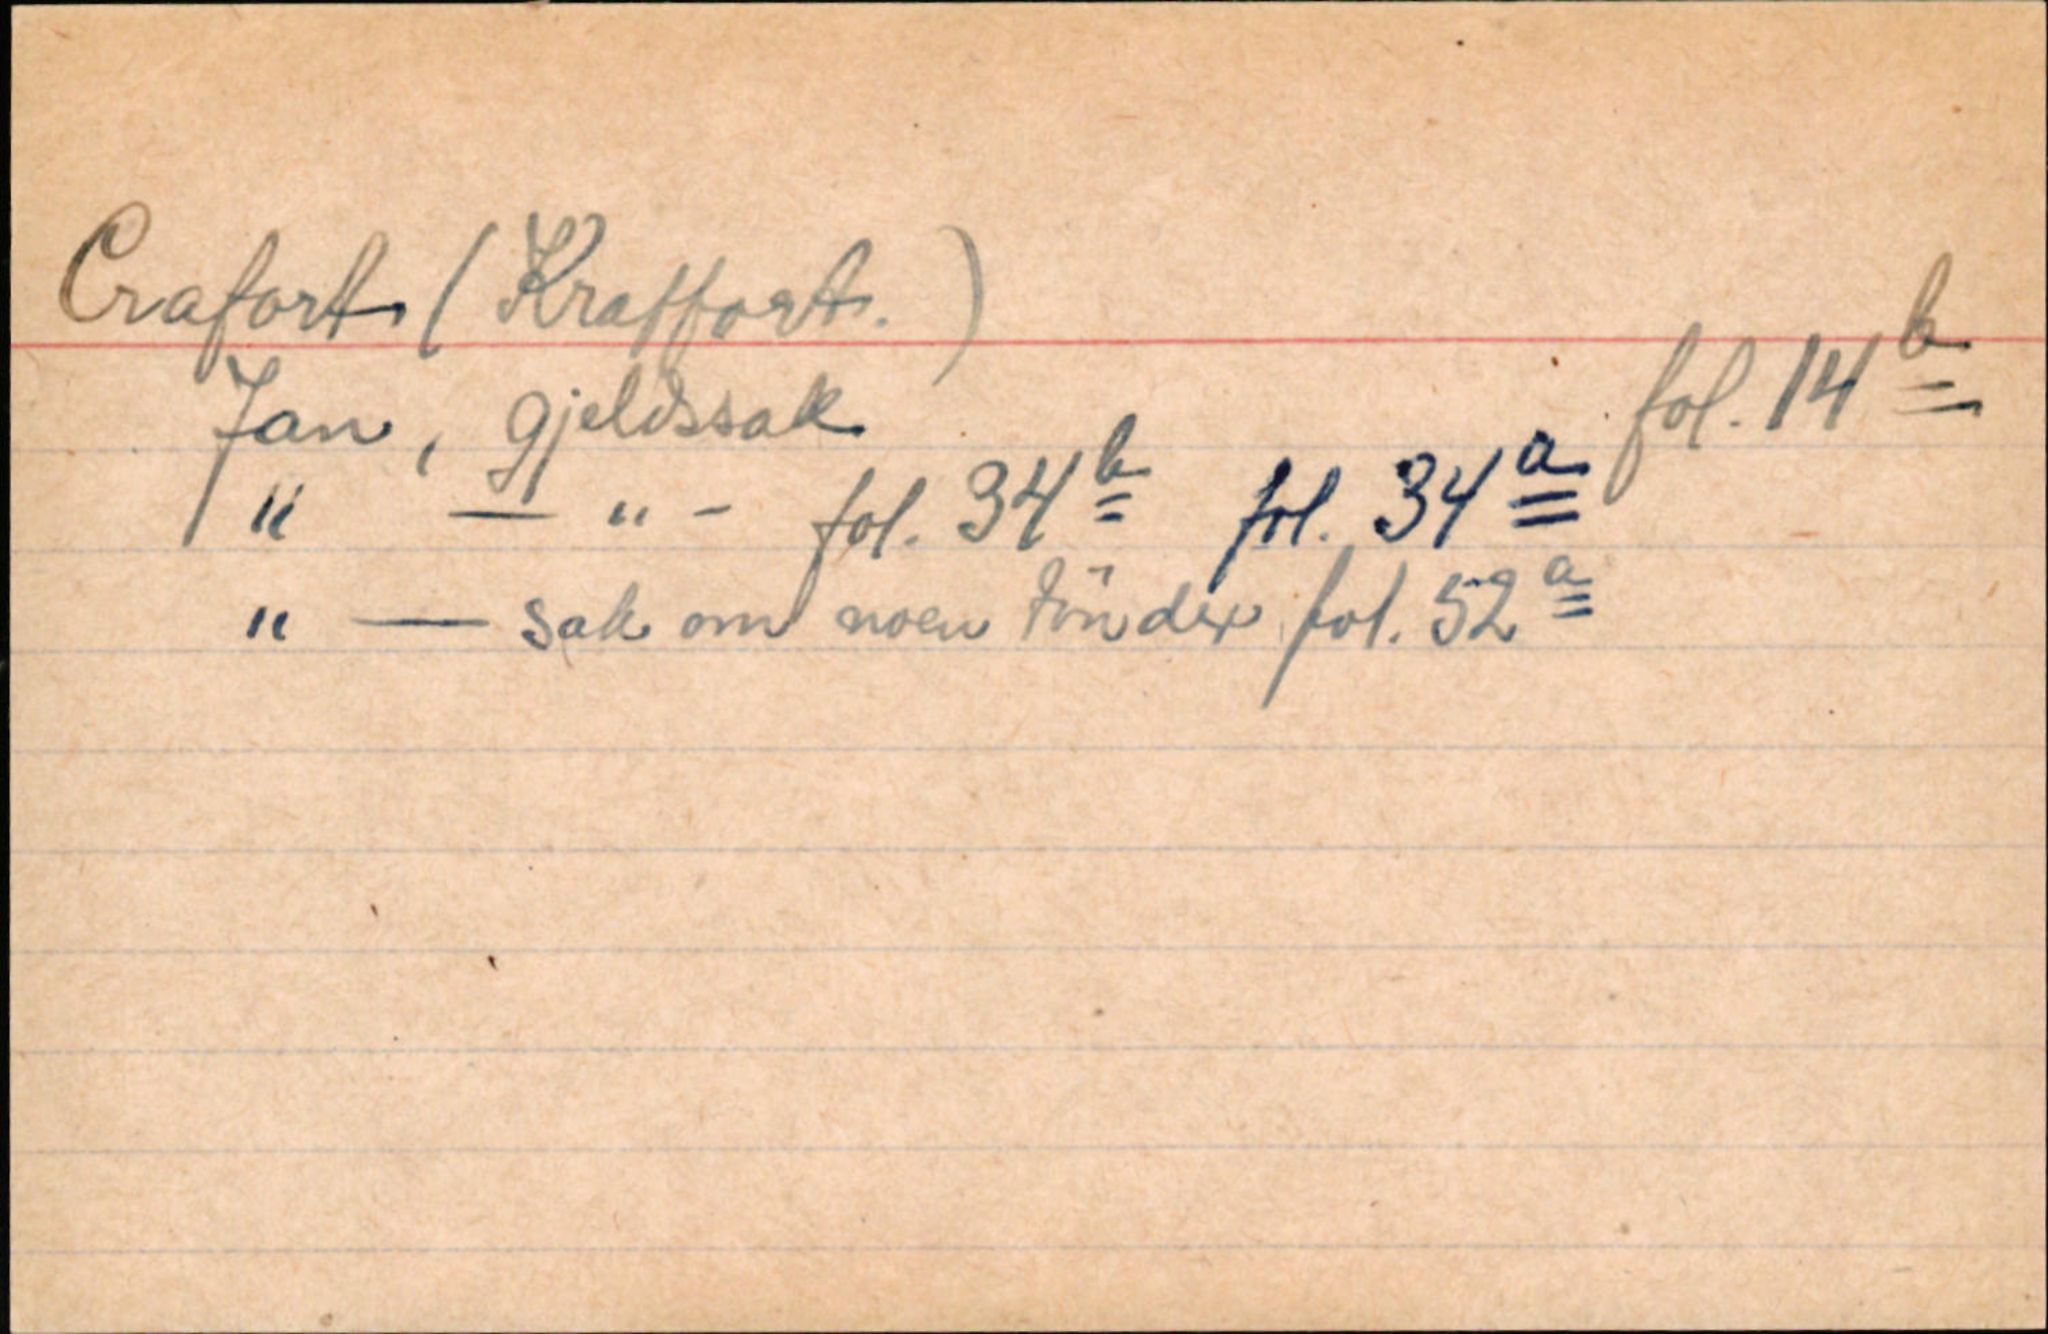 Crafort (Kraffort.)
Jan, gjeldssak fol. 14 b
" — " - fol. 34 b fol. 34 a
" — sak om noen tönder fol. 52 a